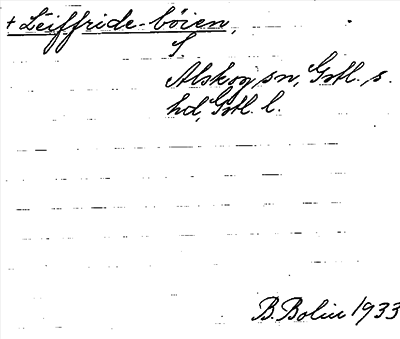 + Leiffride-böien,
S.
Alskog sn, Gotl. s.
hd, Gotl. l.
B. Bolin 1933